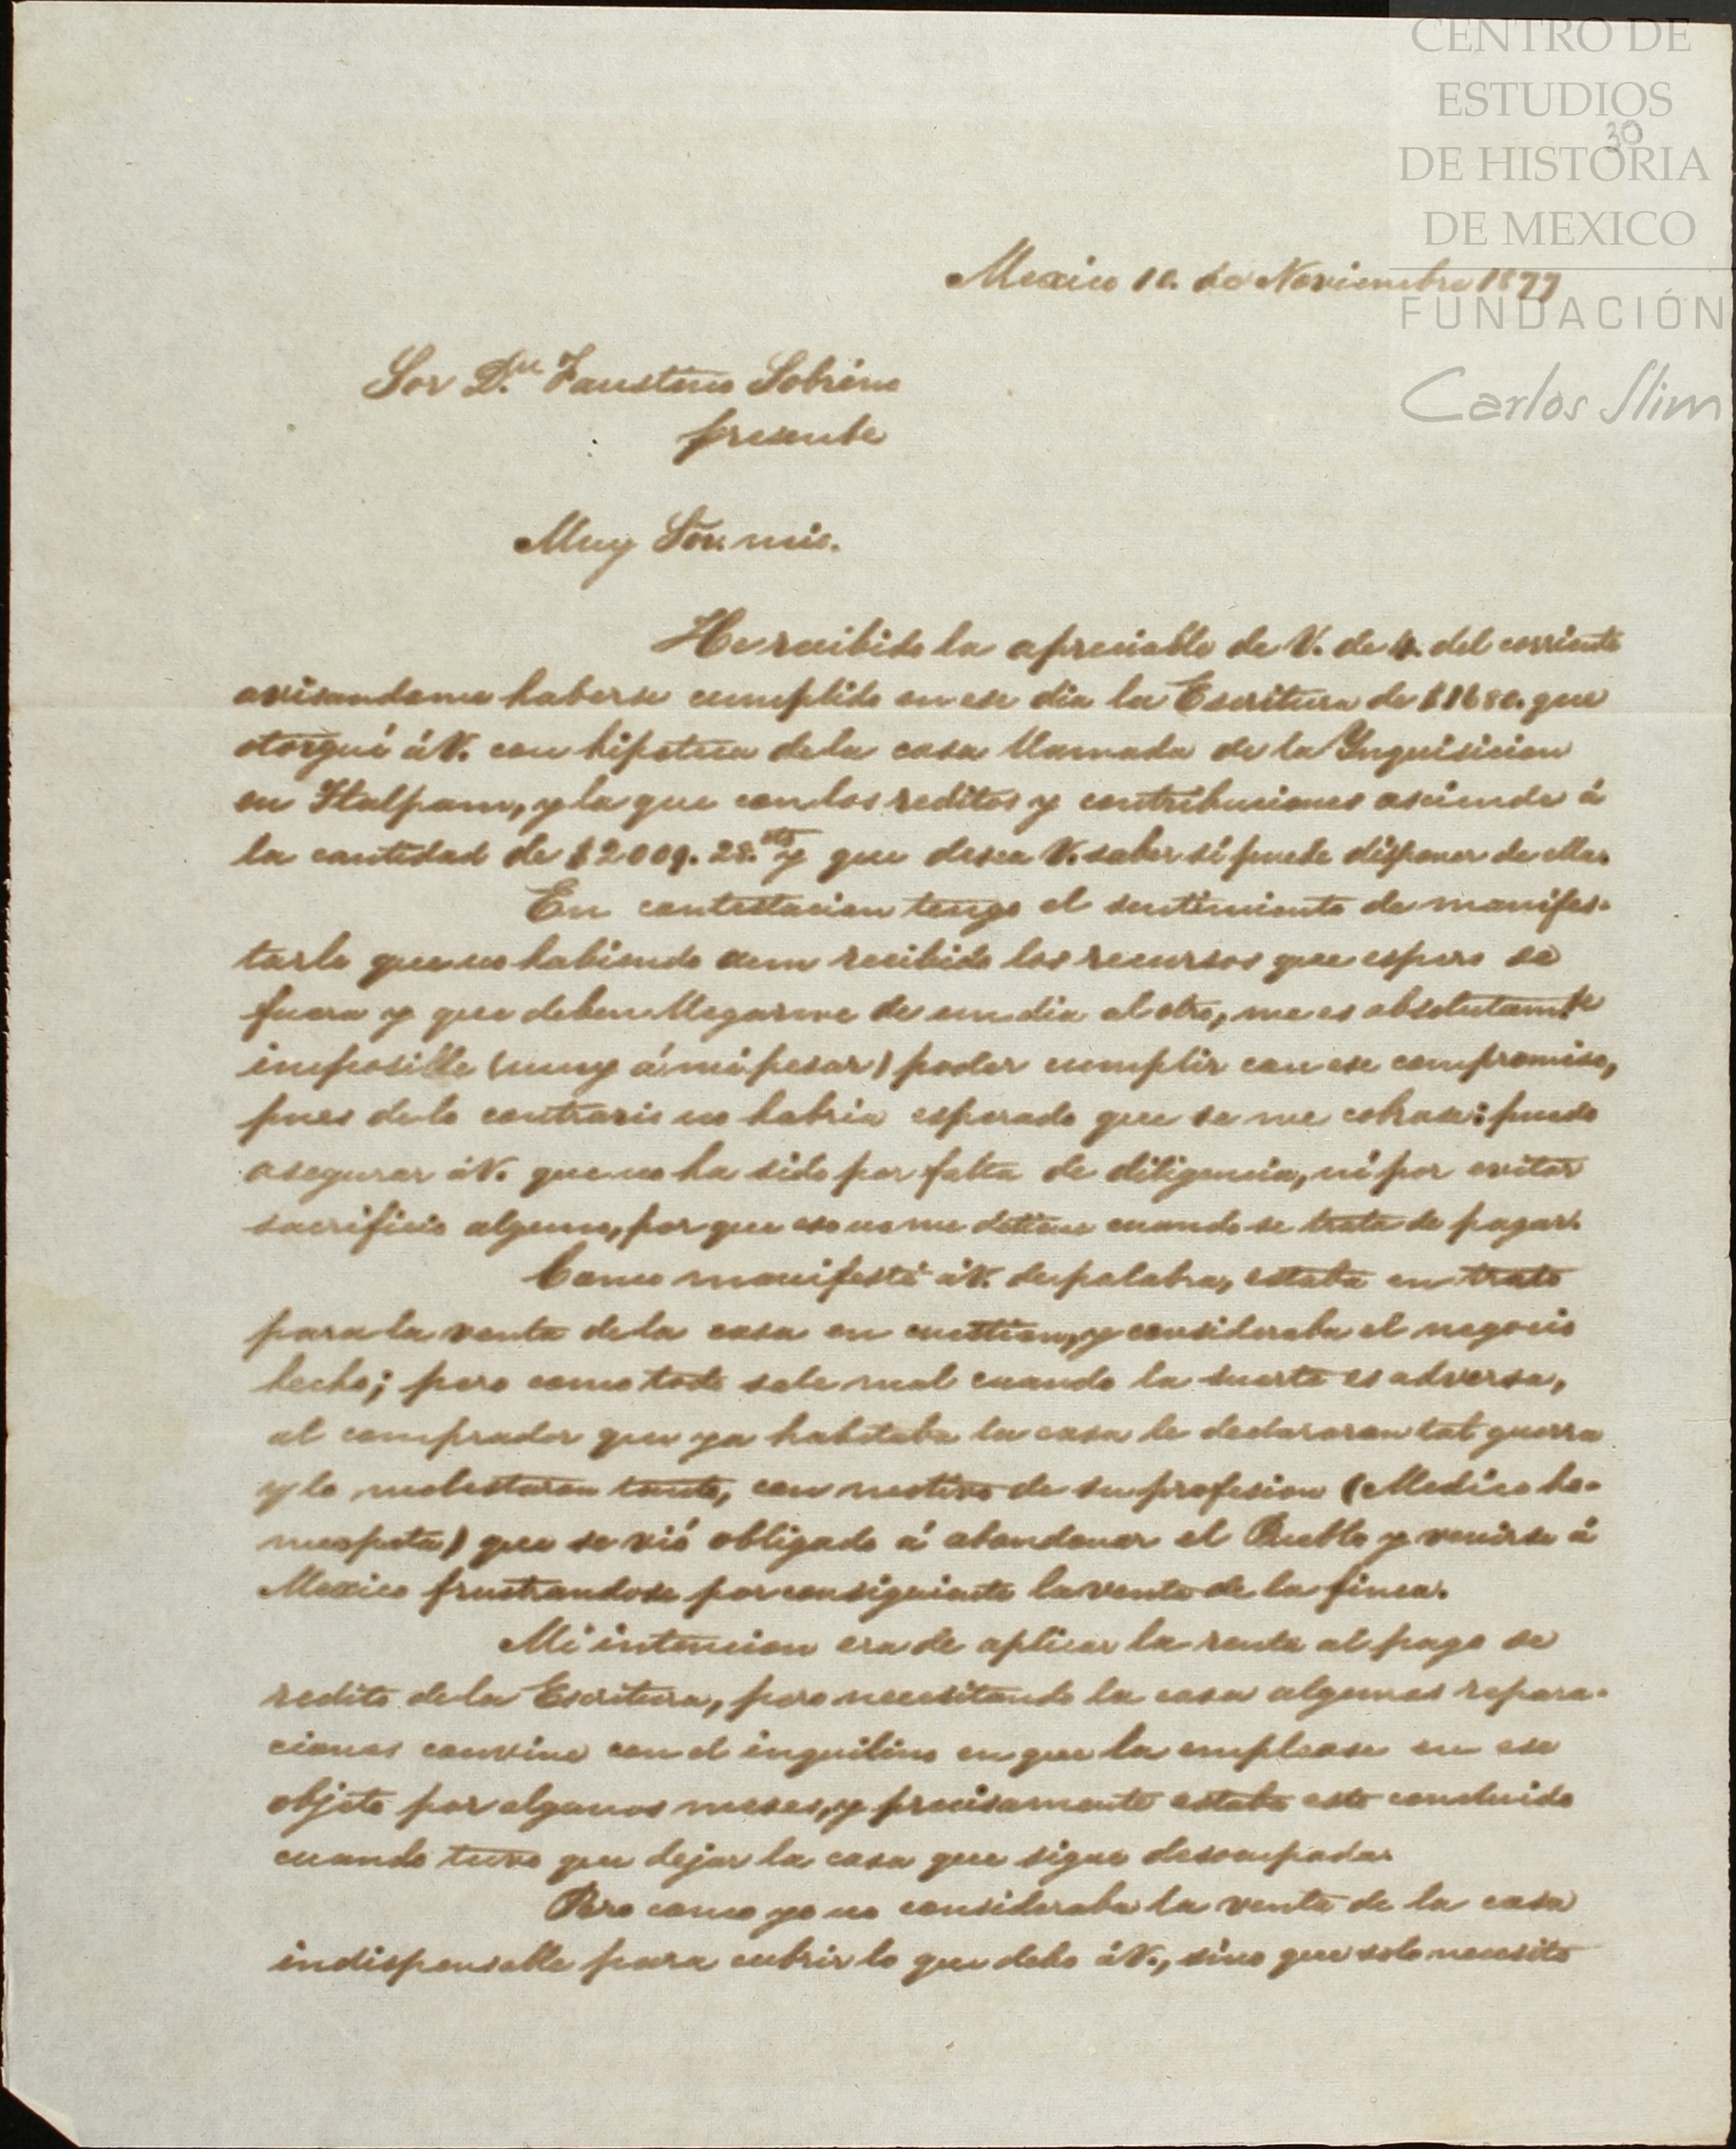 CENTRO DE
ESTUDIOS
DE HISTORIA
DE MEXICO
FUNDACIÓN
Carlos Slim
30
Mexico 10. de Noviembre 1877
Sor D.n Faustino Sobrino
presente
Muy Sor. mio.
He recibido la apreciable de V. de 4. del corriente
avisandome haberse cumplido en ese dia la Escritura de $1680. que
otorgué á V. con hipoteca de la casa llamada de la Ynquisicion
en Tlalpam, y la que con los reditos y contribuciones asciende á
la cantidad de $2009. 28. cts y que desea V. saber si puede disponer de ella.
En contestacion tengo el sentimiento de manifes-
tarle que no habiendo aun recibido los recursos que espero de
fuera y que deben llegarme de un dia al otro, me es absolutamte
imposible (muy á mi pesar) poder cumplir con ese compromiso,
pues de lo contrario no habria esperado que se me cobrase: puedo
asegurar á V. que no ha sido por falta de diligencia, ni por evitar
sacrificio alguno, por que eso no me detiene cuando se trata de pagar.
Como manifesté á V. de palabra, estaba en trato
para la venta de la casa en cuestion, y consideraba el negocio
hecho; pero como todo sale mal cuando la suerte es adversa,
al comprador que ya habitaba la casa le declararon tal guerra
y lo molestaron tanto, con motivo de su profesion (Medico ho-
meopata) que se vió obligado á abandonar el Pueblo y venirse á
Mexico frustrandose por consiguiente la venta de la finca.
Mi intencion era de aplicar la renta al pago de
redito de la Escritura, pero necesitando la casa algunas repara-
ciones convine con el inquilino en que la emplease en ese
objeto por algunos meses, y precisamente estaba esto concluido
cuando tuvo que dejar la casa que sigue desocupada.
Pero como yo no consideraba la venta de la casa
indispensable para cubrir lo que debo á V., sino que solo necesito